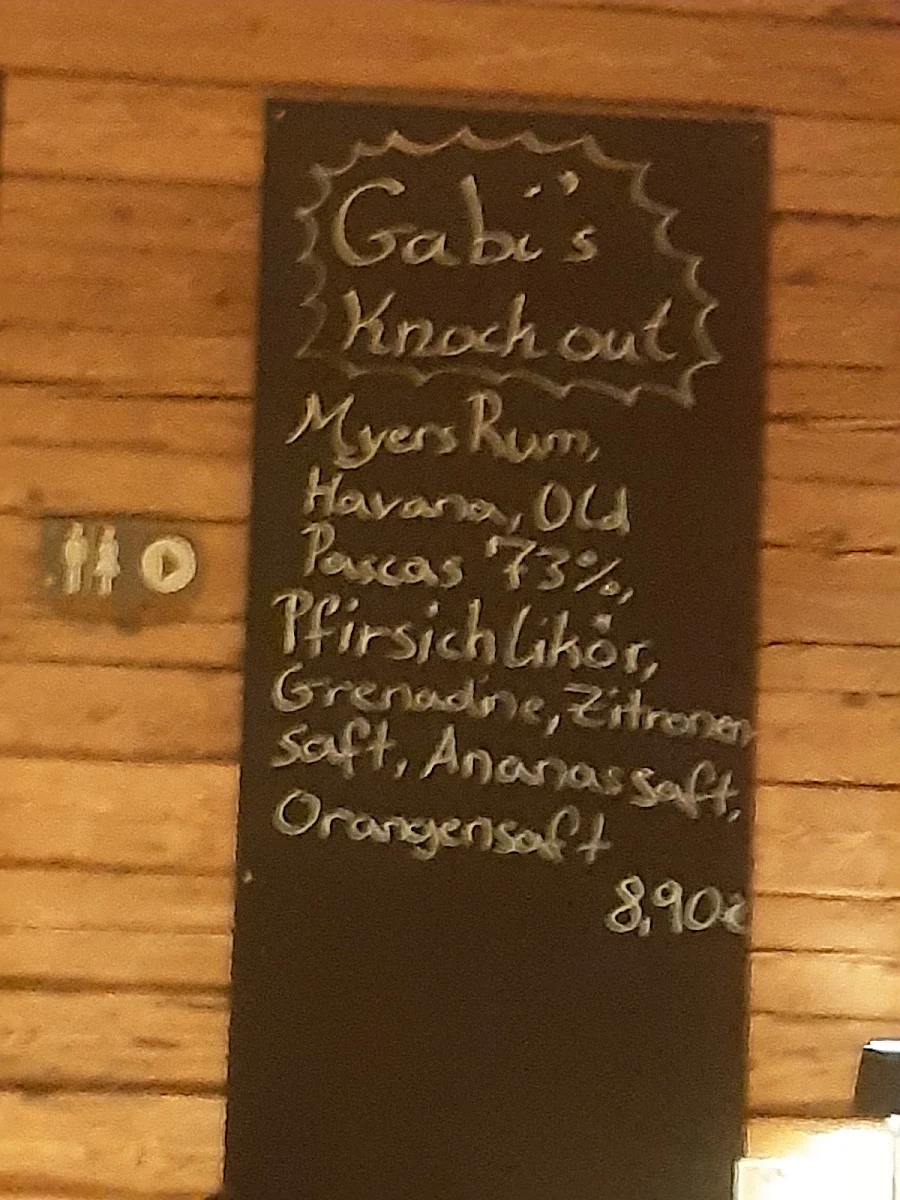 Gabi's
Knock out
Myers Rum,
Havana, Old
Pascas 73%,
Pfirsich likör,
Grenadine, Zitronen
saft, Ananassaft,
Orangensaft
8,90€